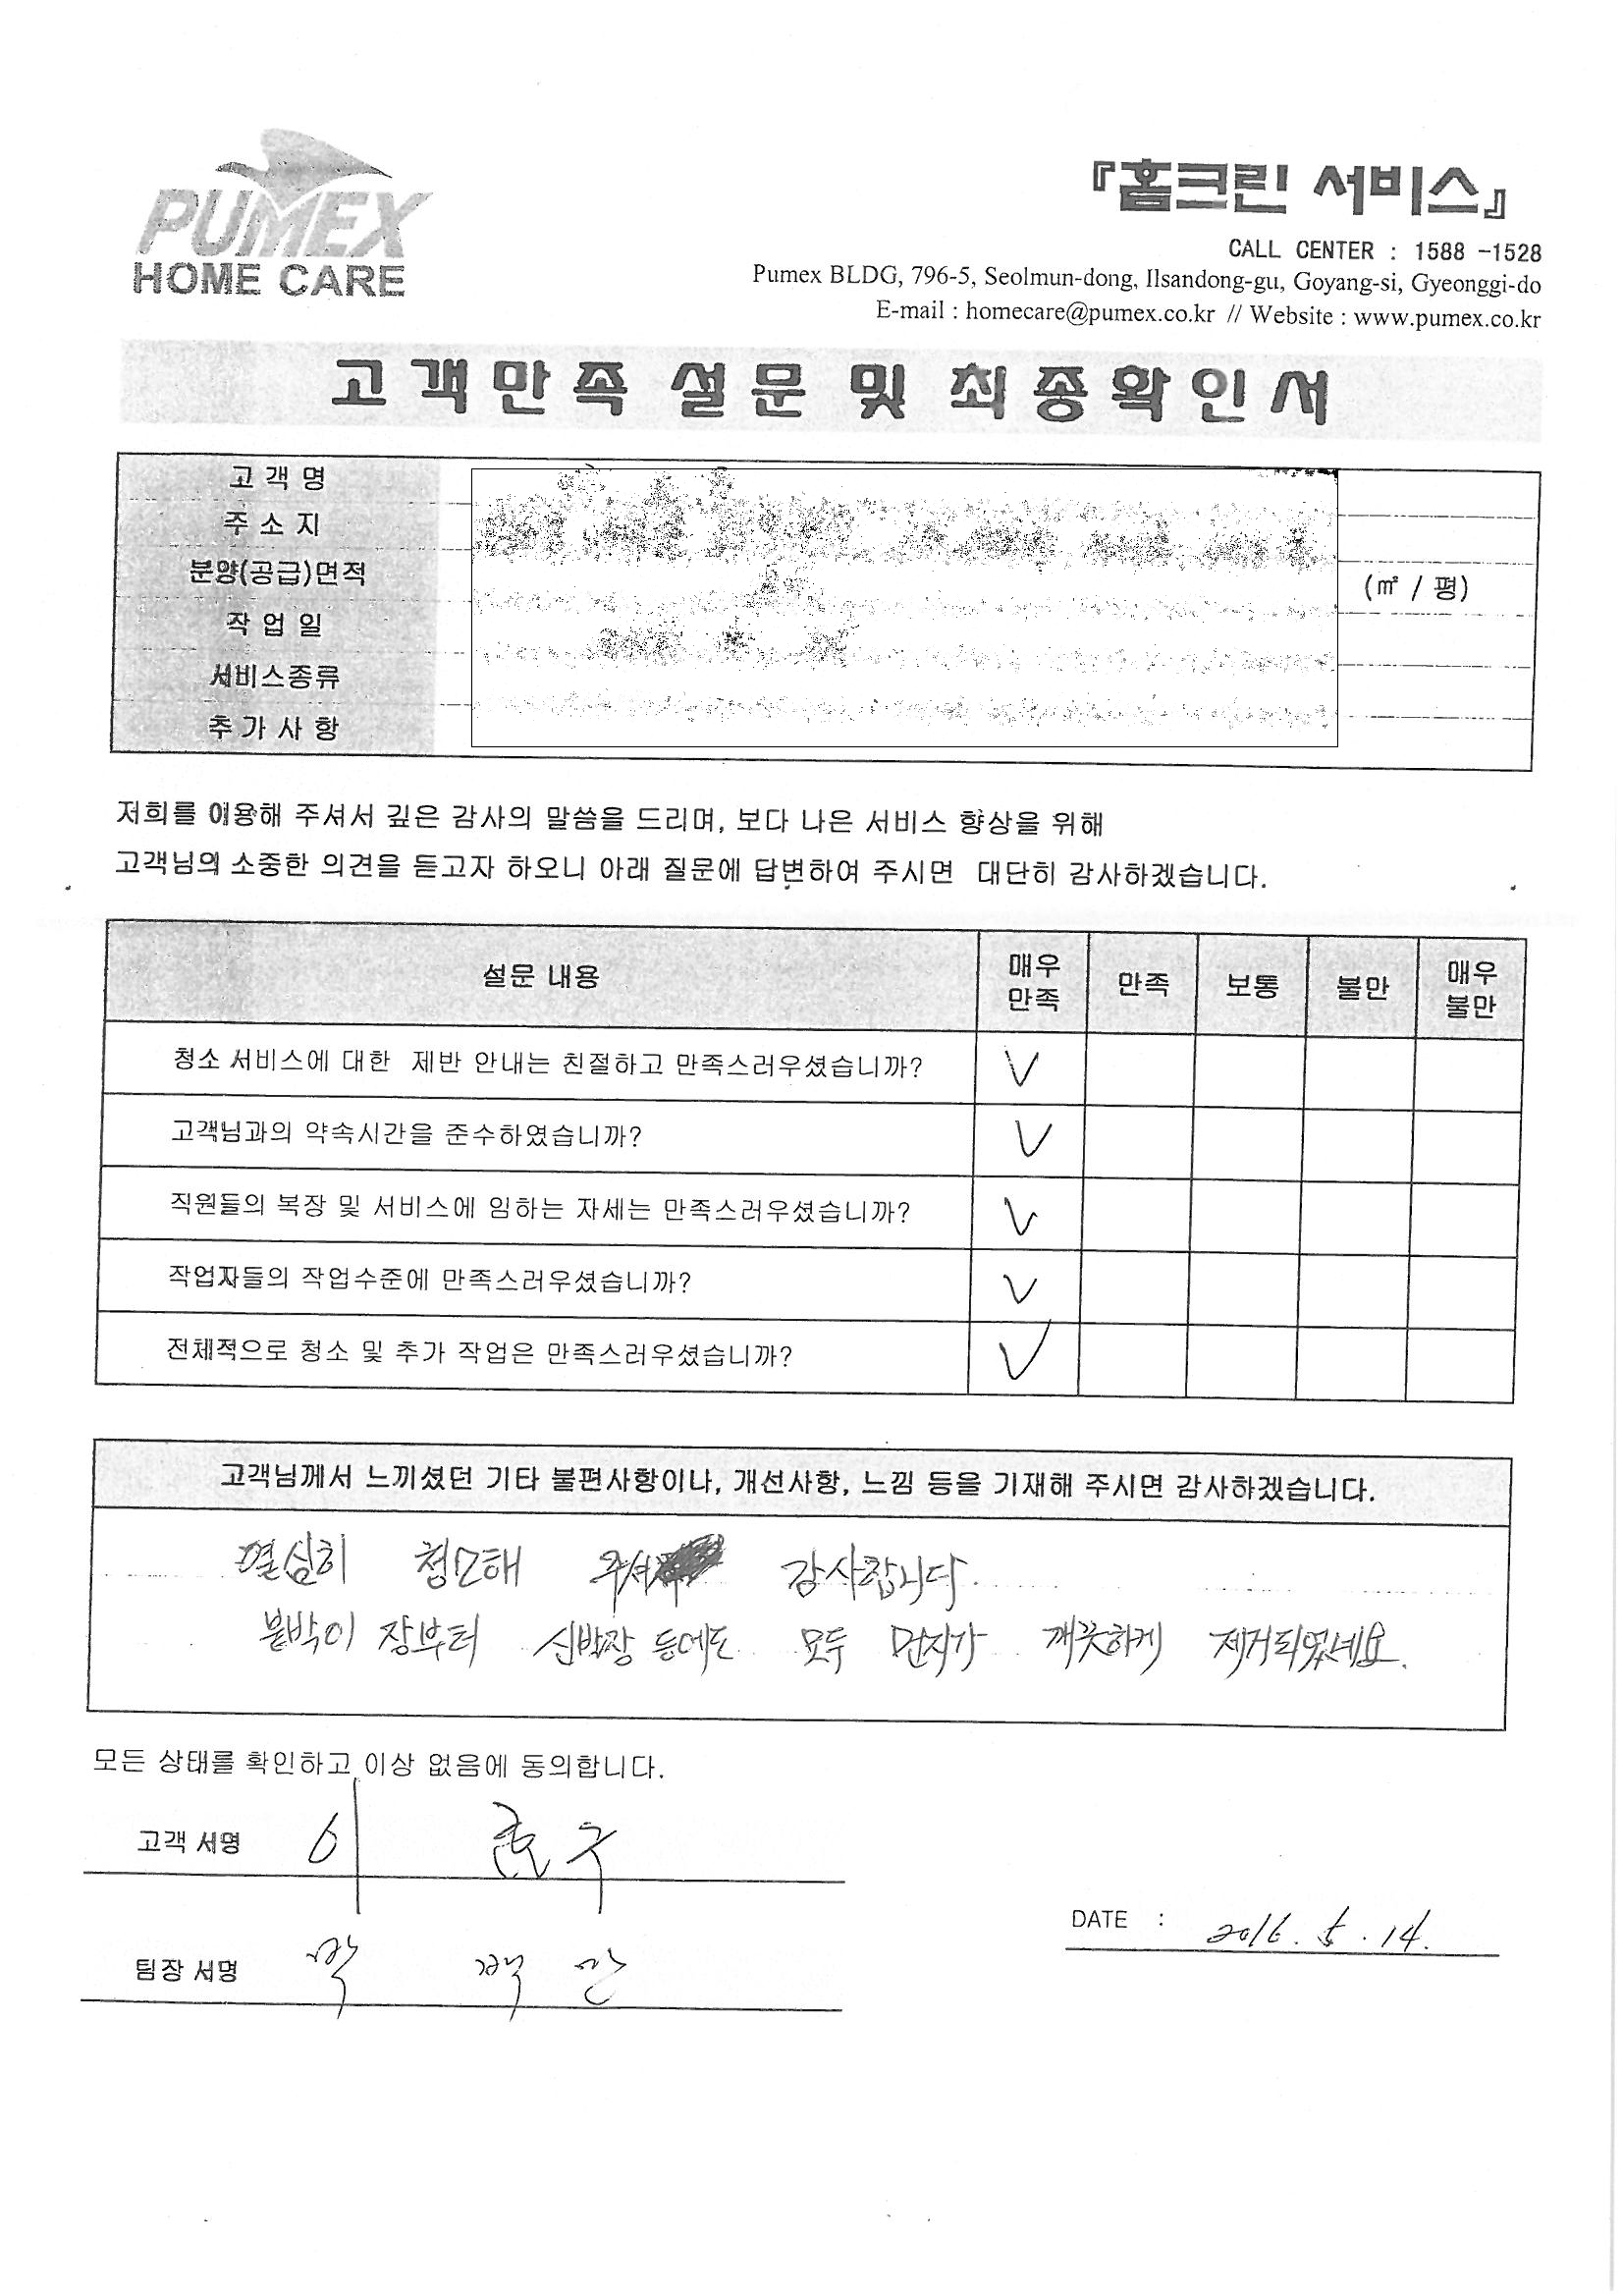 PUMEX
HOME CARE
『홈크린 서비스』
CALL CENTER : 1588 -1528
Pumex BLDG, 796-5, Seolmun-dong, Ilsandong-gu, Goyang-si, Gyeonggi-do
E-mail : homecare@pumex.co.kr // Website : www.pumex.co.kr
고객만족 설문 및 최종확인서
고객명
주소지
분양(공급)면적 (㎡ / 평)
작업일
서비스종류
추가사항
저희를 이용해 주셔서 깊은 감사의 말씀을 드리며, 보다 나은 서비스 향상을 위해
고객님의 소중한 의견을 듣고자 하오니 아래 질문에 답변하여 주시면 대단히 감사하겠습니다.
설문 내용 매우 만족 만족 보통 불만 매우 불만
청소 서비스에 대한 제반 안내는 친절하고 만족스러우셨습니까? V
고객님과의 약속시간을 준수하였습니까? V
직원들의 복장 및 서비스에 임하는 자세는 만족스러우셨습니까? V
작업자들의 작업수준에 만족스러우셨습니까? V
전체적으로 청소 및 추가 작업은 만족스러우셨습니까? V
고객님께서 느끼셨던 기타 불편사항이나, 개선사항, 느낌 등을 기재해 주시면 감사하겠습니다.
열심히 청소해 주셔 감사합니다.
붙박이 장부터 신발장 등에도 모두 먼지가 깨끗하게 제거되었네요.
모든 상태를 확인하고 이상 없음에 동의합니다.
고객 서명 이
팀장 서명
DATE : 2016. 5. 14.